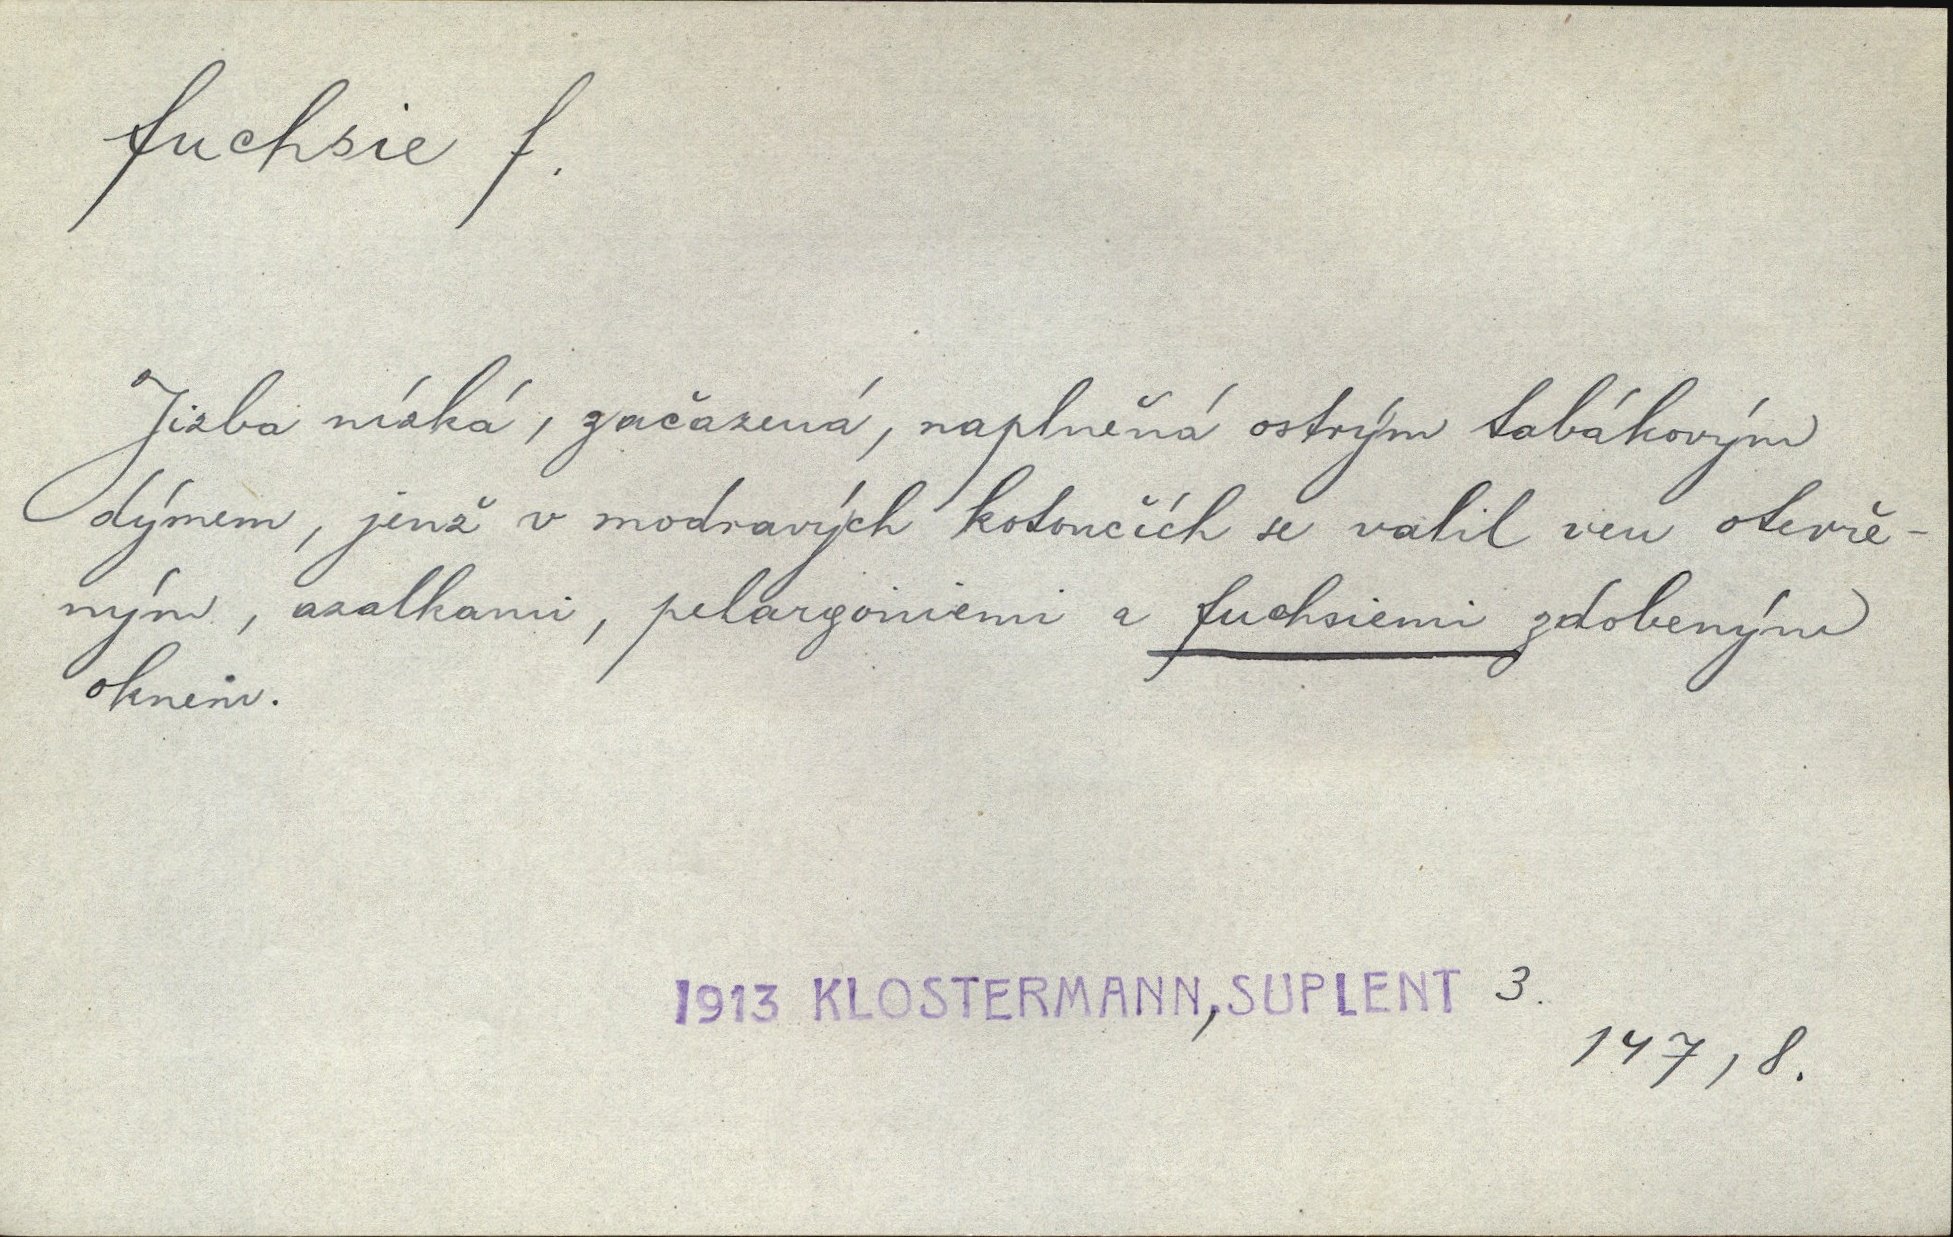 fuchsie f.
Jizba nízká, začazená, naplněná ostrým tabákovým
dýmem, jenž v modravých kotoučích se valil ven otevře-
ným, azalkami, pelargoniemi a fuchsiemi zdobeným
oknem.
1913 KLOSTERMANN, SUPLENT 3.
147, 8.